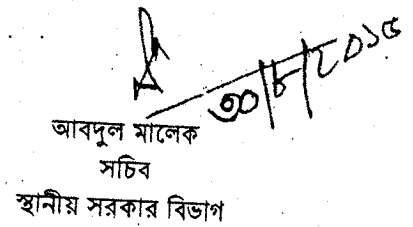 ৩০/৮/২০১৫
আবদুল মালেক
সচিব
স্থানীয় সরকার বিভাগ